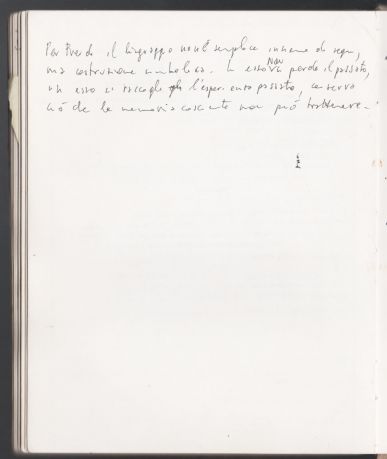 Per Freud il linguaggio non è semplice insieme di segni,
ma costruzione simbolica. In esso non perdo il passato,
in esso si raccoglie l'esperienza passata, conserva
ciò che la memoria cosciente non può trattenere.